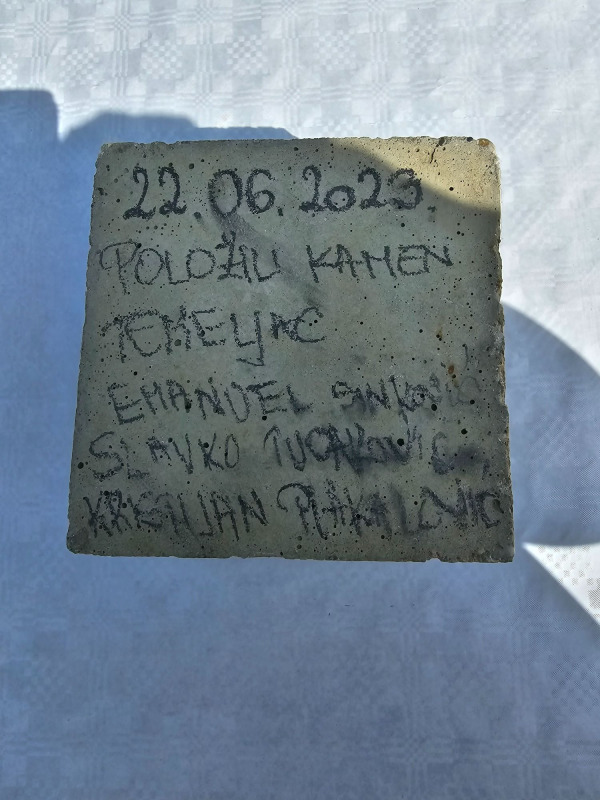 22.06.2023.
POLOŽILI KAMEN
TEMELJAC
EMANUEL SINKOVIĆ
SLAVKO
KRISTIJAN PLAKALOVIC